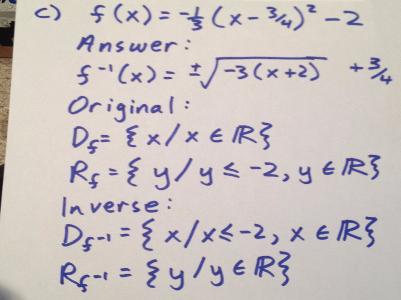 c) f(x) = -1/3 (x - 3/4)² - 2
Answer:
f⁻¹(x) = ±√-3(x+2) + 3/4
Original:
D_f = { x/x ∈ ℝ}
R_f = { y/y ≤ -2, y ∈ ℝ}
Inverse:
D_f⁻¹ = { x/x ≤ -2, x ∈ ℝ}
R_f⁻¹ = { y/y ∈ ℝ}